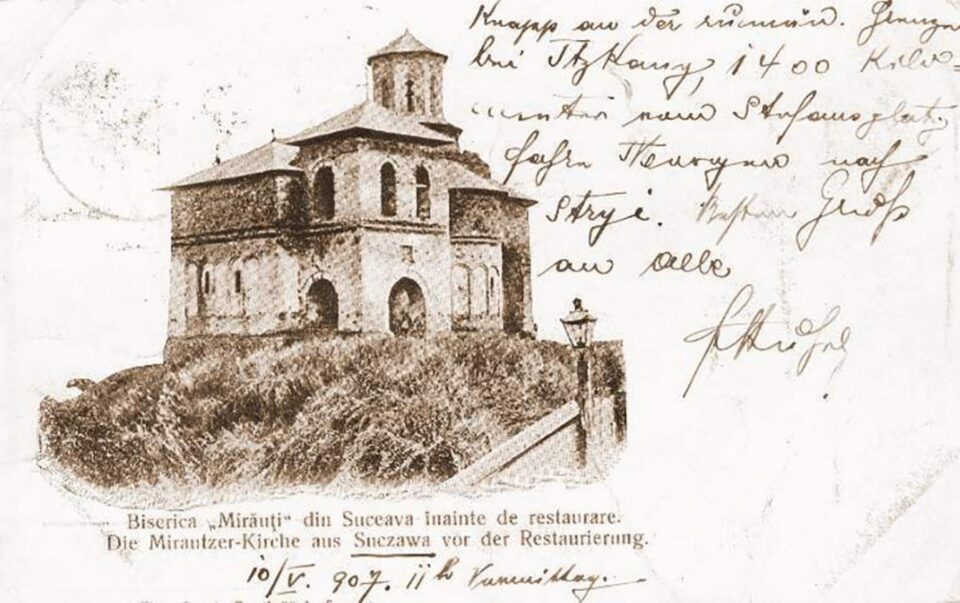 Knapp an der rumän. Grenze
bei Itzkany, 1400 Kilo-
meter vom Stefansplatz,
fahre Morgen nach
Stryi. Besten Gruß
an alle
Biserica „Mirăuţi“ din Suceava înainte de restaurare.
Die Mirautzer-Kirche aus Suczawa vor der Restaurierung.
10/V. 907. 11h Vormittag.